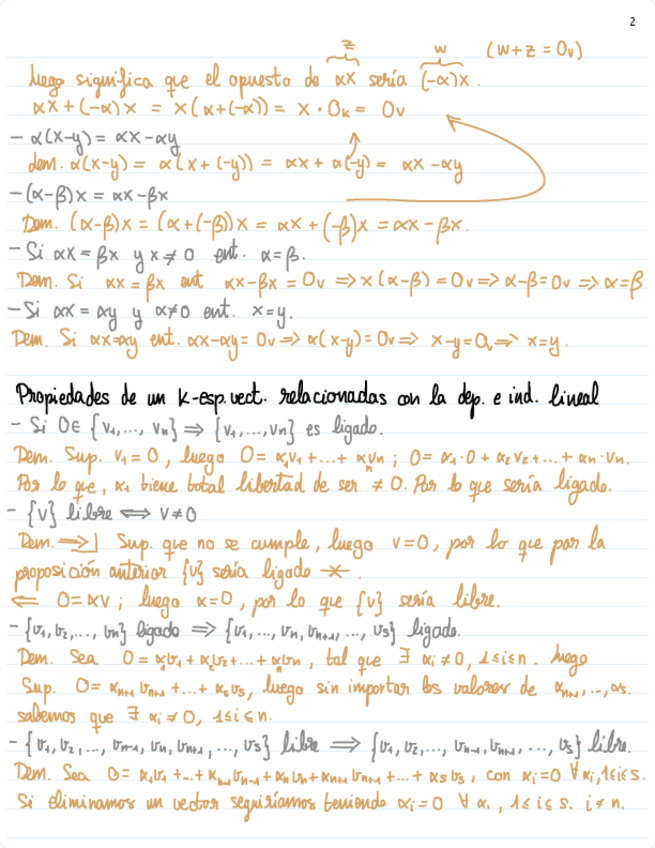 2
z w (w+z = 0v)
luego significa que el opuesto de αx sería (-α)x.
αx+(-α)x = x(α+(-α)) = x·0k = 0v
- α(x-y) = αx-αy
dem. α(x-y) = α(x+(-y)) = αx+α(-y) = αx-αy
- (α-β)x = αx-βx
Dem. (α-β)x = (α+(-β))x = αx+(-β)x = αx-βx.
- Si αx = βx y x≠0 ent. α=β.
Dem. Si αx = βx ent αx-βx = 0v ⇒ x(α-β) = 0v ⇒ α-β=0v ⇒ α=β
- Si αx = αy y α≠0 ent. x=y.
Dem. Si αx=αy ent. αx-αy = 0v ⇒ α(x-y) = 0v ⇒ x-y=0v ⇒ x=y.
Propiedades de un k-esp.vect. relacionadas con la dep. e ind. lineal
- Si 0∈{v1,..., vn} ⇒ {v1,...,vn} es ligado.
Dem. Sup. v1=0, luego 0 = α1v1+...+αnvn ; 0 = α1·0 + α2v2+...+ αn·vn.
Por lo que, α1 tiene total libertad de ser ≠ 0. Por lo que sería ligado.
- {v} libre ⇔ v≠0
Dem. ⇒| Sup. que no se cumple, luego v=0, por lo que por la
proposición anterior {v} sería ligado ※.
⇐ 0=αv ; luego α=0, por lo que {v} sería libre.
- {v1,v2,..., vn} ligado ⇒ {v1,..., vn, vn+1,..., vs} ligado.
Dem. Sea 0 = α1v1+α2v2+...+αnvn, tal que ∃ αi≠0, 1≤i≤n. luego
Sup. 0 = αn+1 vn+1 +...+ αsvs, luego sin importar los valores de αn+1,..,αs.
sabemos que ∃ αi ≠ 0, 1≤i≤n.
- {v1,v2,..., vn-1, vn, vn+1,..., vs} libre ⇒ {v1,v2,..., vn-1,vn+1,..., vs} libre.
Dem. Sea 0 = α1v1+...+αn-1vn-1+αnvn+αn+1vn+1+...+αsvs, con αi=0 ∀αi,1≤i≤s.
Si eliminamos un vector seguiríamos teniendo αi=0 ∀ αi, 1≤i≤s. i≠n.